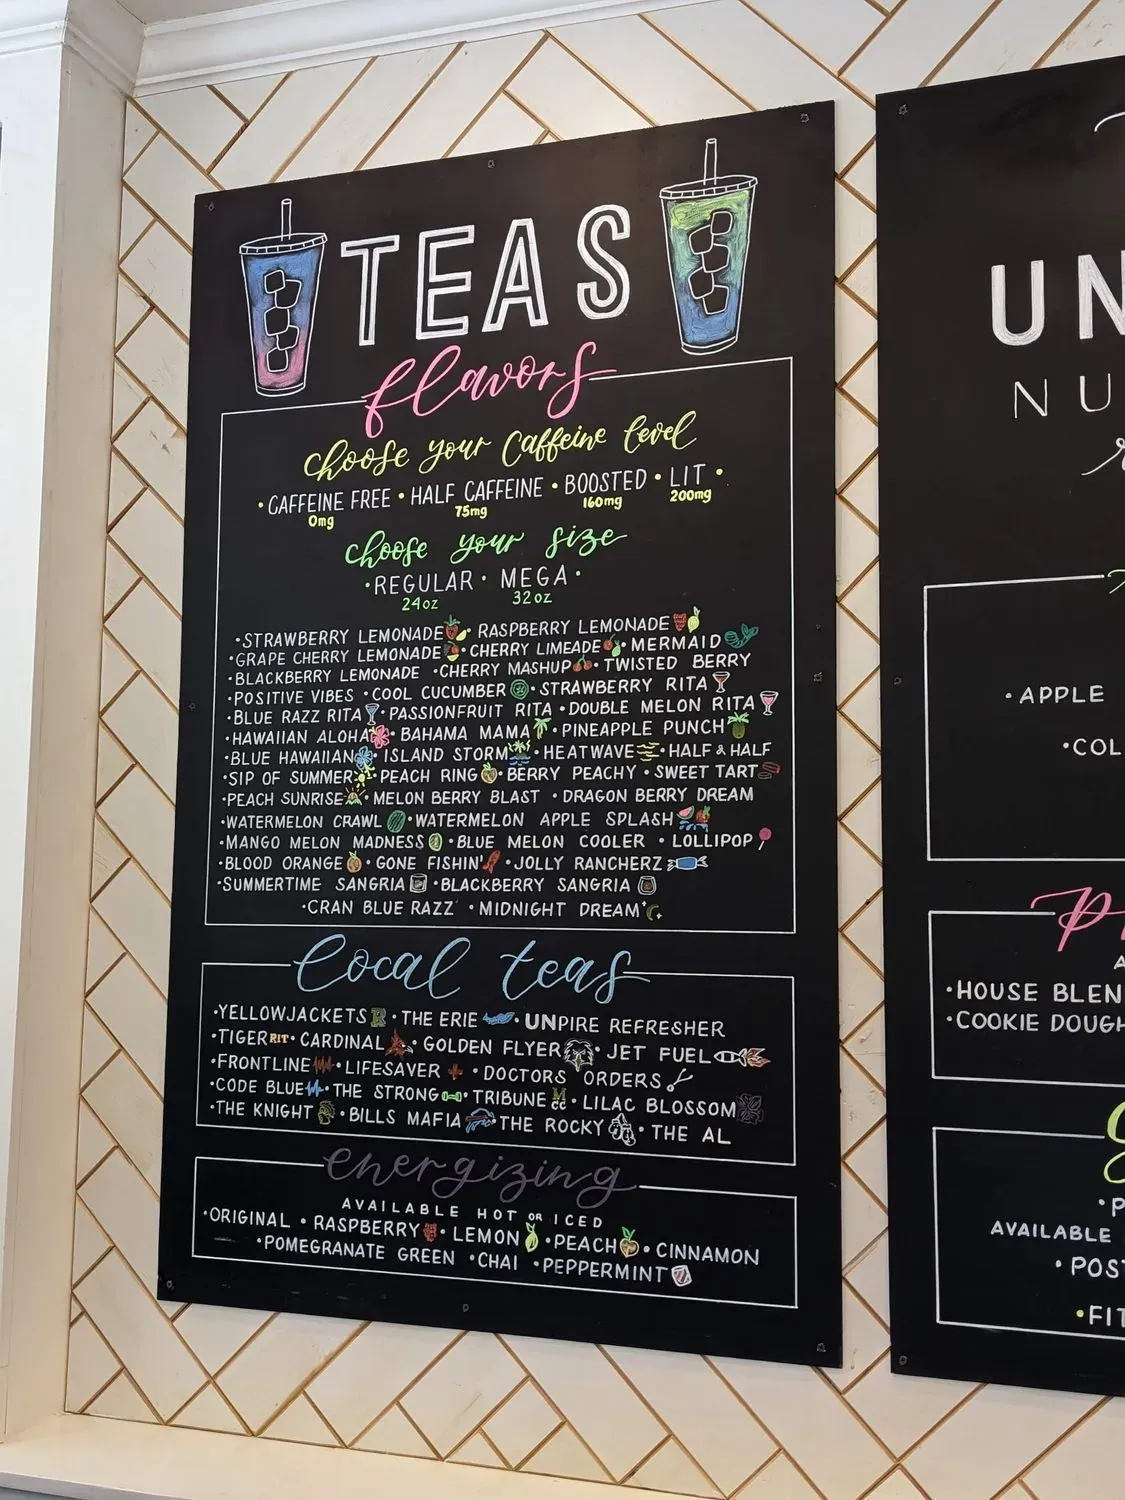 TEAS
flavors
choose your Caffeine level
• CAFFEINE FREE • HALF CAFFEINE • BOOSTED • LIT •
0mg 75mg 160mg 200mg
choose your size
• REGULAR • MEGA •
24oz 32oz
•STRAWBERRY LEMONADE • RASPBERRY LEMONADE
•GRAPE CHERRY LEMONADE • CHERRY LIMEADE • MERMAID
•BLACKBERRY LEMONADE •CHERRY MASHUP • TWISTED BERRY
•POSITIVE VIBES •COOL CUCUMBER • STRAWBERRY RITA
•BLUE RAZZ RITA •PASSIONFRUIT RITA •DOUBLE MELON RITA
•HAWAIIAN ALOHA • BAHAMA MAMA • PINEAPPLE PUNCH
•BLUE HAWAIIAN • ISLAND STORM • HEATWAVE • HALF & HALF
•SIP OF SUMMER • PEACH RING • BERRY PEACHY • SWEET TART
•PEACH SUNRISE • MELON BERRY BLAST • DRAGON BERRY DREAM
•WATERMELON CRAWL •WATERMELON APPLE SPLASH
•MANGO MELON MADNESS • BLUE MELON COOLER • LOLLIPOP
•BLOOD ORANGE • GONE FISHIN' • JOLLY RANCHERZ
•SUMMERTIME SANGRIA • BLACKBERRY SANGRIA
•CRAN BLUE RAZZ •MIDNIGHT DREAM
local teas
•YELLOWJACKETS R • THE ERIE • UNPIRE REFRESHER
•TIGER RIT • CARDINAL • GOLDEN FLYER • JET FUEL
•FRONTLINE • LIFESAVER • DOCTORS ORDERS
•CODE BLUE • THE STRONG • TRIBUNE M CC • LILAC BLOSSOM
•THE KNIGHT • BILLS MAFIA • THE ROCKY • THE AL
energizing
AVAILABLE HOT OR ICED
•ORIGINAL • RASPBERRY • LEMON •PEACH • CINNAMON
•POMEGRANATE GREEN •CHAI •PEPPERMINT
UN
NU
•APPLE
•COL
•HOUSE BLEN
•COOKIE DOUGH
AVAILABLE
• POST
•FIT